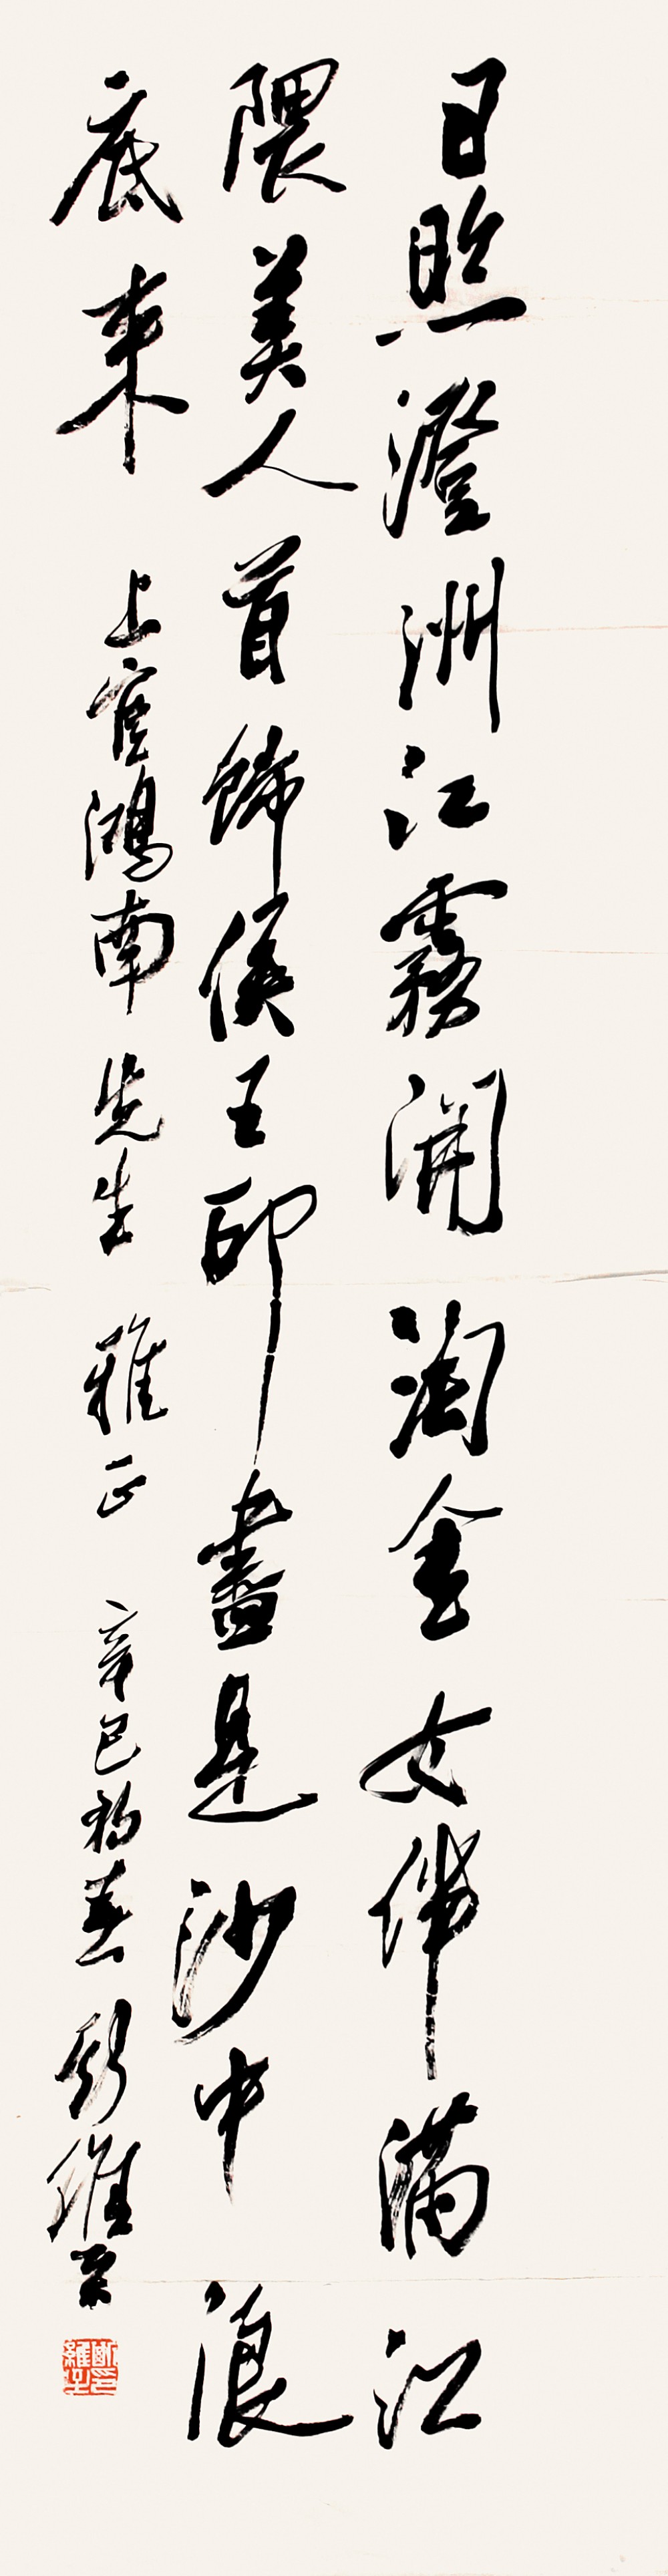 日照澄洲江霧開淘金女伴滿江
隈美人首飾侯王印盡是沙中浪
底来 上官鴻南先生 雅正 辛巳初春 維